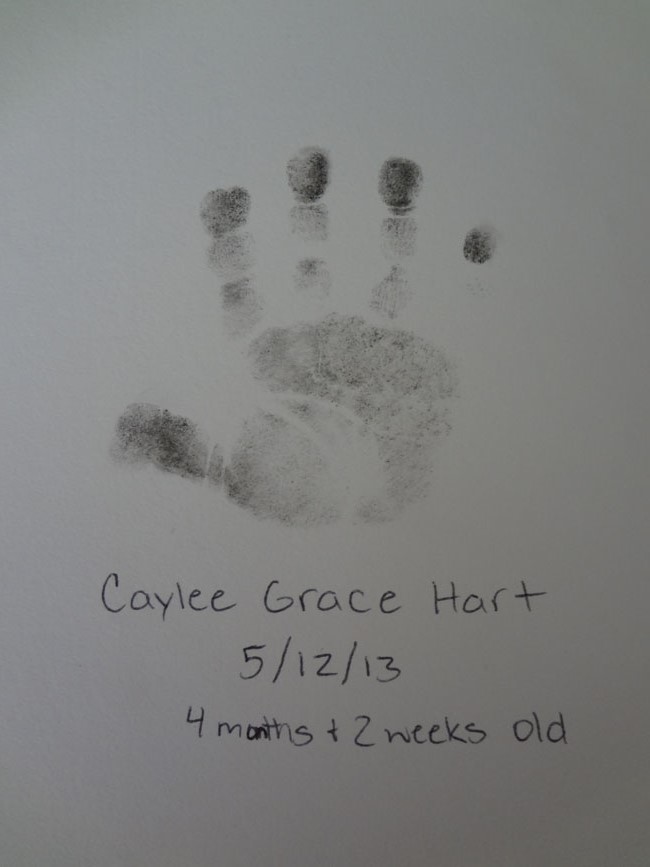 Caylee Grace Hart
5/12/13
4 months + 2 weeks old